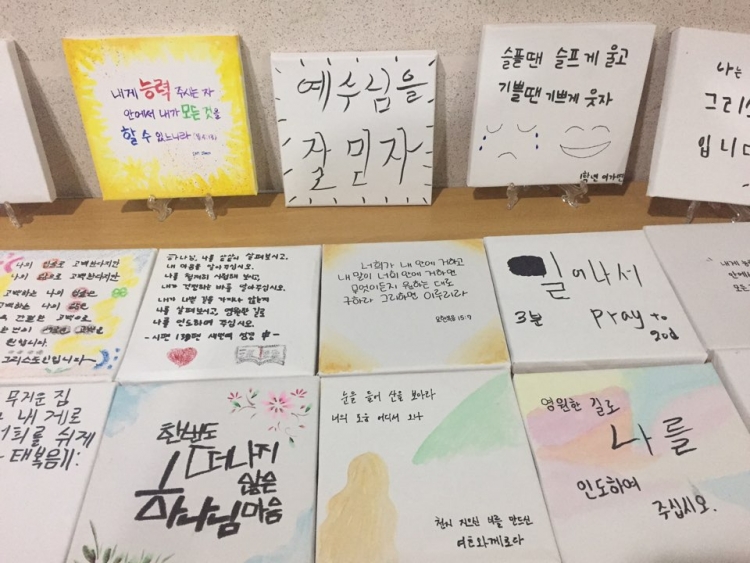 내게 능력 주시는 자
안에서 내가 모든 것을
할 수 있느니라
예수님을
잘 믿자
슬플땐 슬프게 울고
기쁠땐 기쁘게 웃자
나는
그리스
입니다
나의 입술로 고백한다지만
나의 삶으로 고백한다지만
고백하는 나의
고백하는 나의
그리스도인입니다
하나님, 나를 샅샅이 살펴보시고,
내 마음을 알아주십시오.
나를 철저히 시험해 보고,
내가 걱정하는 바를 알아주십시오.
내가 나쁜 길을 가지나 않는지
나를 살펴보시고, 영원한 길로
나를 인도하여 주십시오.
-시편 139편 새번역 성경
너희가 내 안에 거하고
내 말이 너희 안에 거하면
무엇이든지 원하는 대로
구하라 그리하면 이루리라
요한복음 15:7
일어나서
3분 pray to
god
내게
안에서
모든
무거운 짐
내게로
너희를 쉬게
마태복음11:
한번도
떠나지
않은
하나님마음
눈을 들어 산을 보아라
너의 도움 어디서 오나
천지 지으신 너를 만드신
여호와께로다
영원한 길로
나를
인도하여
주십시오.